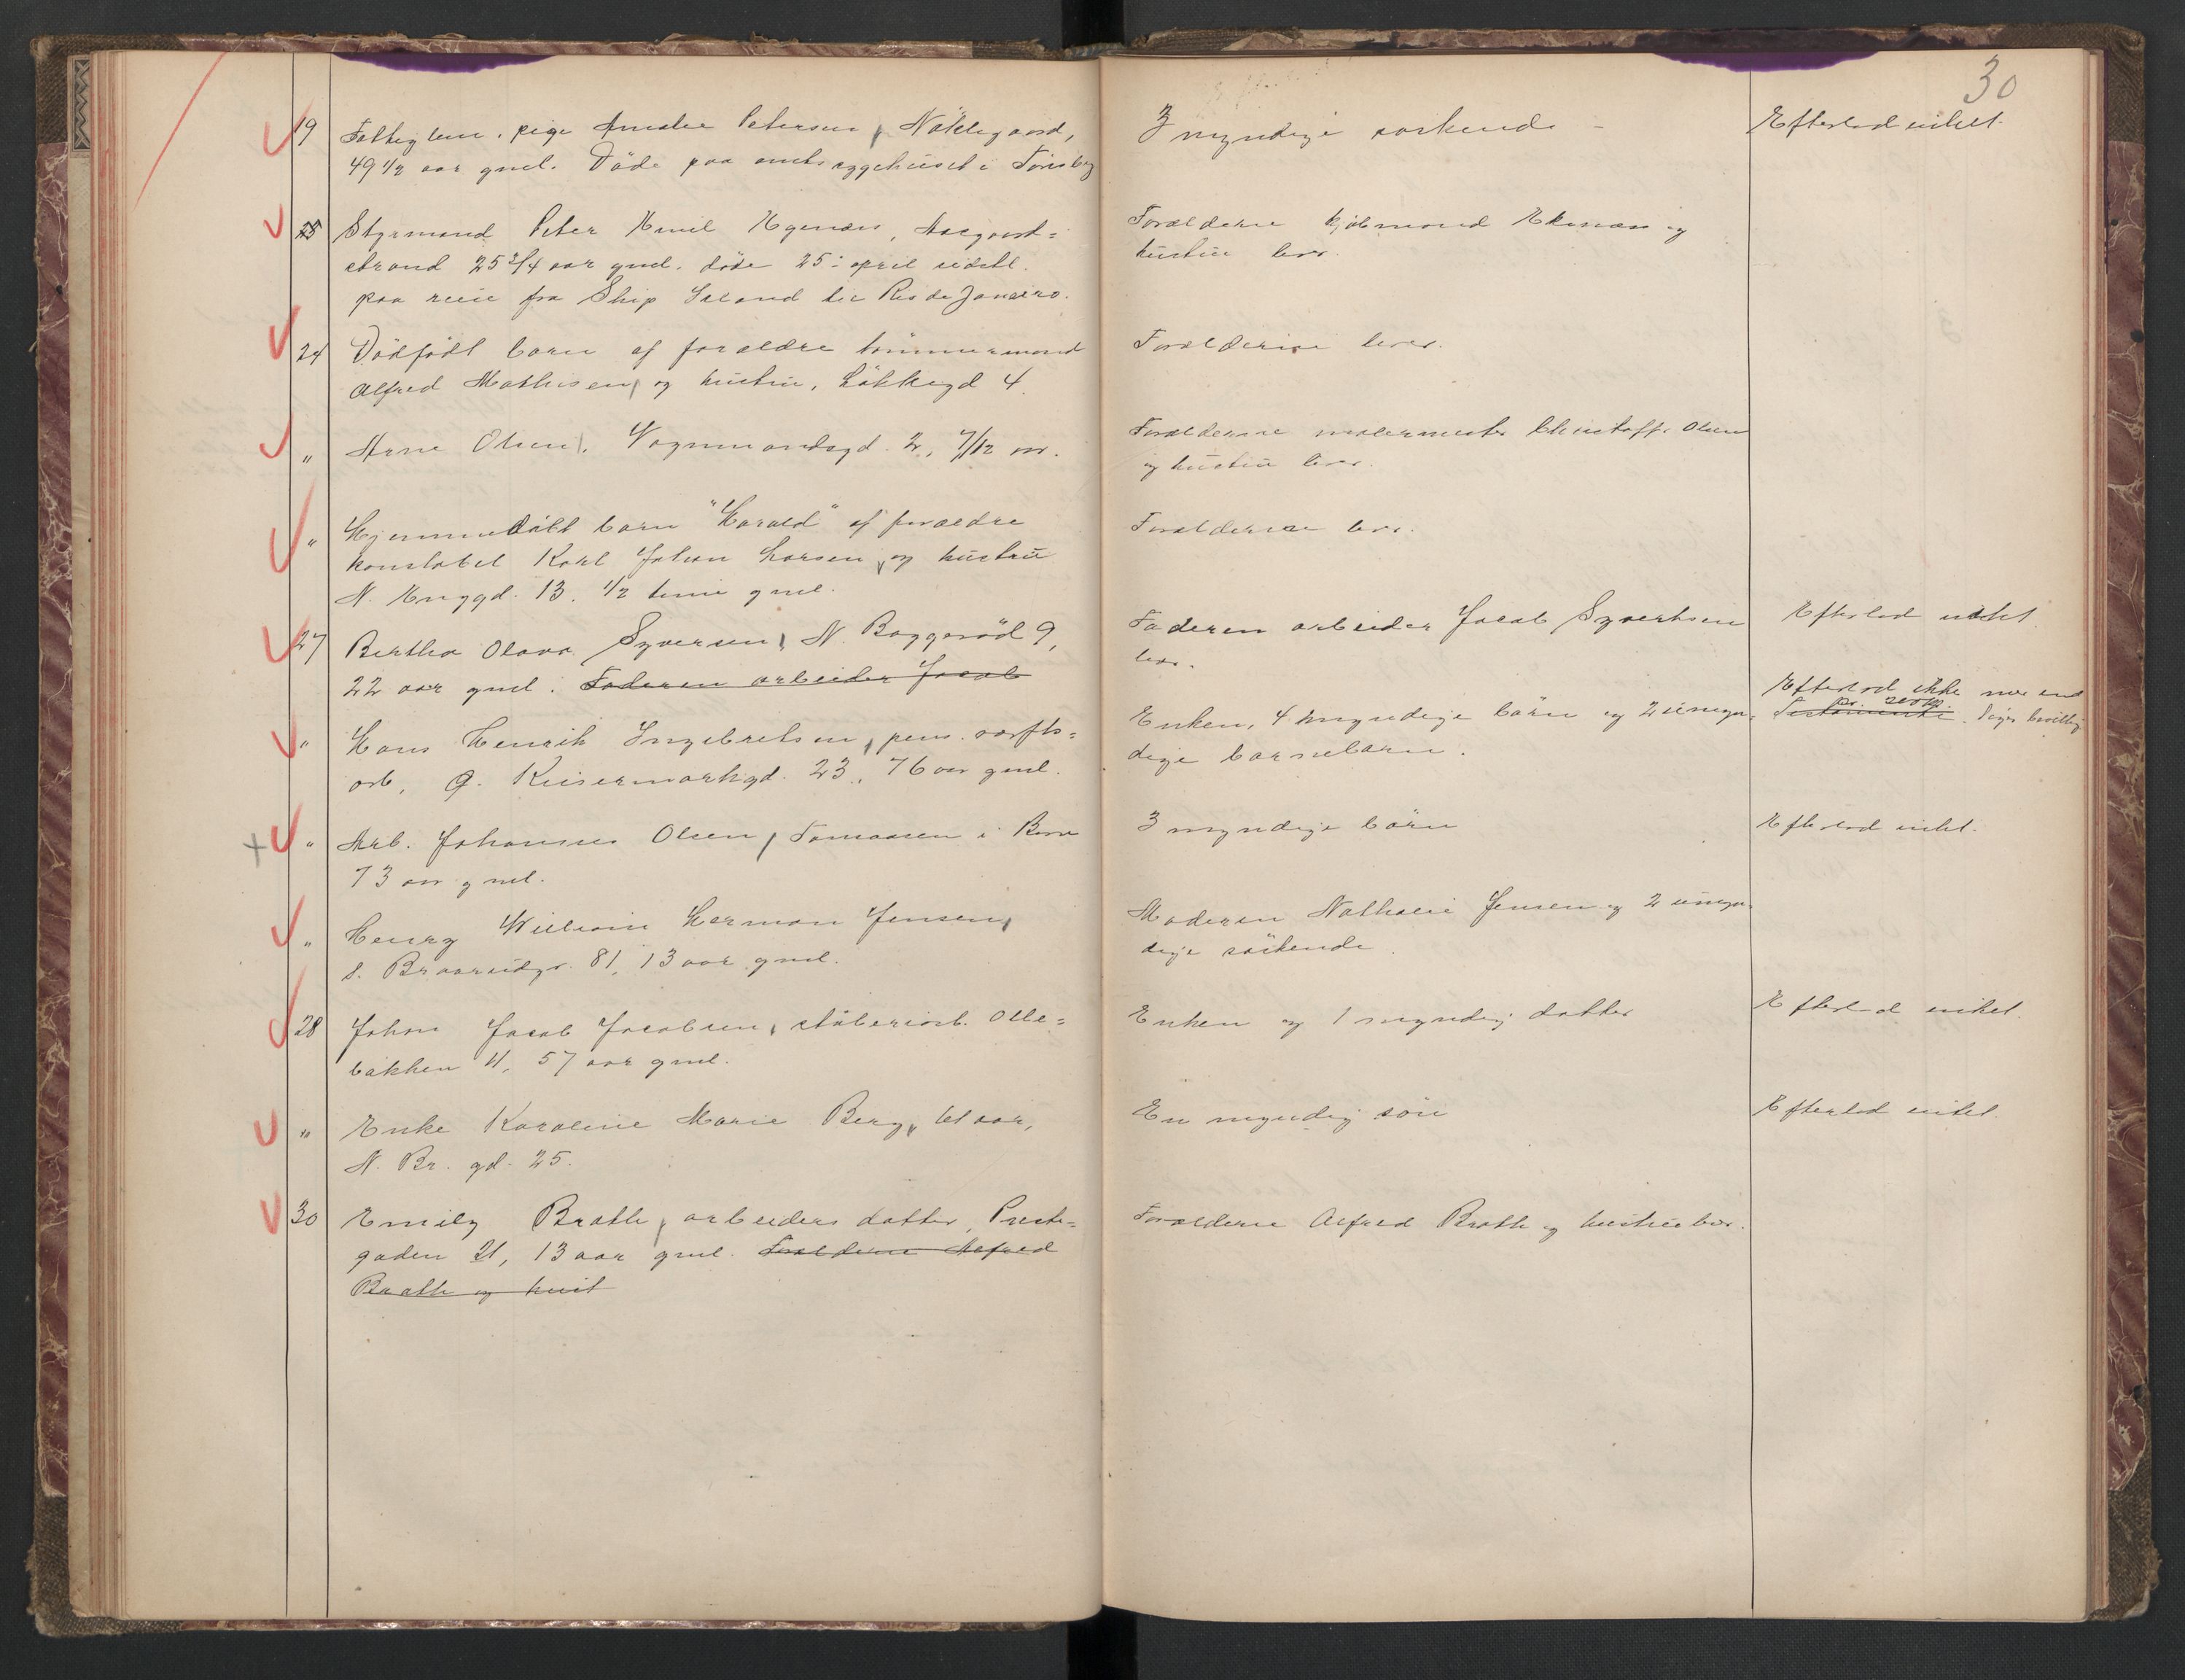 30
19 Fattiglem. pige Amalie Petersen, Nöklegaard,
49 1/2 aar gml. Döde paa amtssygehuset i Tönsberg
3 myndige söskende -
Efterlod intet.
25 Styrmand Peter Emil Egenæs, Aasgaard=
strand 25 3/4 aar gml. döde 25: april sidstl.
paa reise fra Ship Island til Rio de Janeiro.
Forælderne kjöbmand Ekenæs og
hustru lever.
24 Dödfödt barn af forældre tömmermand
Alfred Mathisen og hustru, Lökkegd 4.
Forælderne lever.
" Arne Olsen, Vognmandsgd. 2, 7/12 aar.
Forælderne malermester Christoffer Olsen
og hustru lever.
" Hjemmedöbt barn "Harald" af forældre
konstabel Karl Johan Larsen og hustru
N. Enggd. 13. 1/2 time gml.
Forælderne lever.
27 Bertha Olava Syversen, N. Baggeröd 9,
22 aar gml. Faderen arbeider Jacob
Faderen arbeider Jacob Syvertsen
lever.
Efterlod intet.
" Hans Henrik Ingebretsen, pens. værfts=
arb, Ø. Keisermarkgd. 23, 76 aar gml.
Enken, 4 myndige börn og 2 umyn=
dige barnebarn.
Efterlod ikke mer end
kr. 200.
Testamente.
" Arb. Johannes Olsen, i Borre
73 aar gml.
3 myndige börn
Efterlod intet.
" Henry William Herman Jensen,
S. Braarudgd. 81, 13 aar gml.
Moderen Nathalie Jensen og 2 umyn=
dige söskende
28 Johan Jacob Jacobsen, stöberiarb. Olle=
bakken 11, 57 aar gml.
Enken og 1 myndig datter
Efterlod intet.
" Enke Karoline Marie Berg, 61 aar,
N. Br. gd. 25.
En myndig sön
Efterlod intet.
30 Emily Brathe, arbeiders datter, Preste=
gaden 21, 13 aar gml. Forælderne Alfred
Brathe og hust
Forælderne Alfred Brathe og hustru lever.